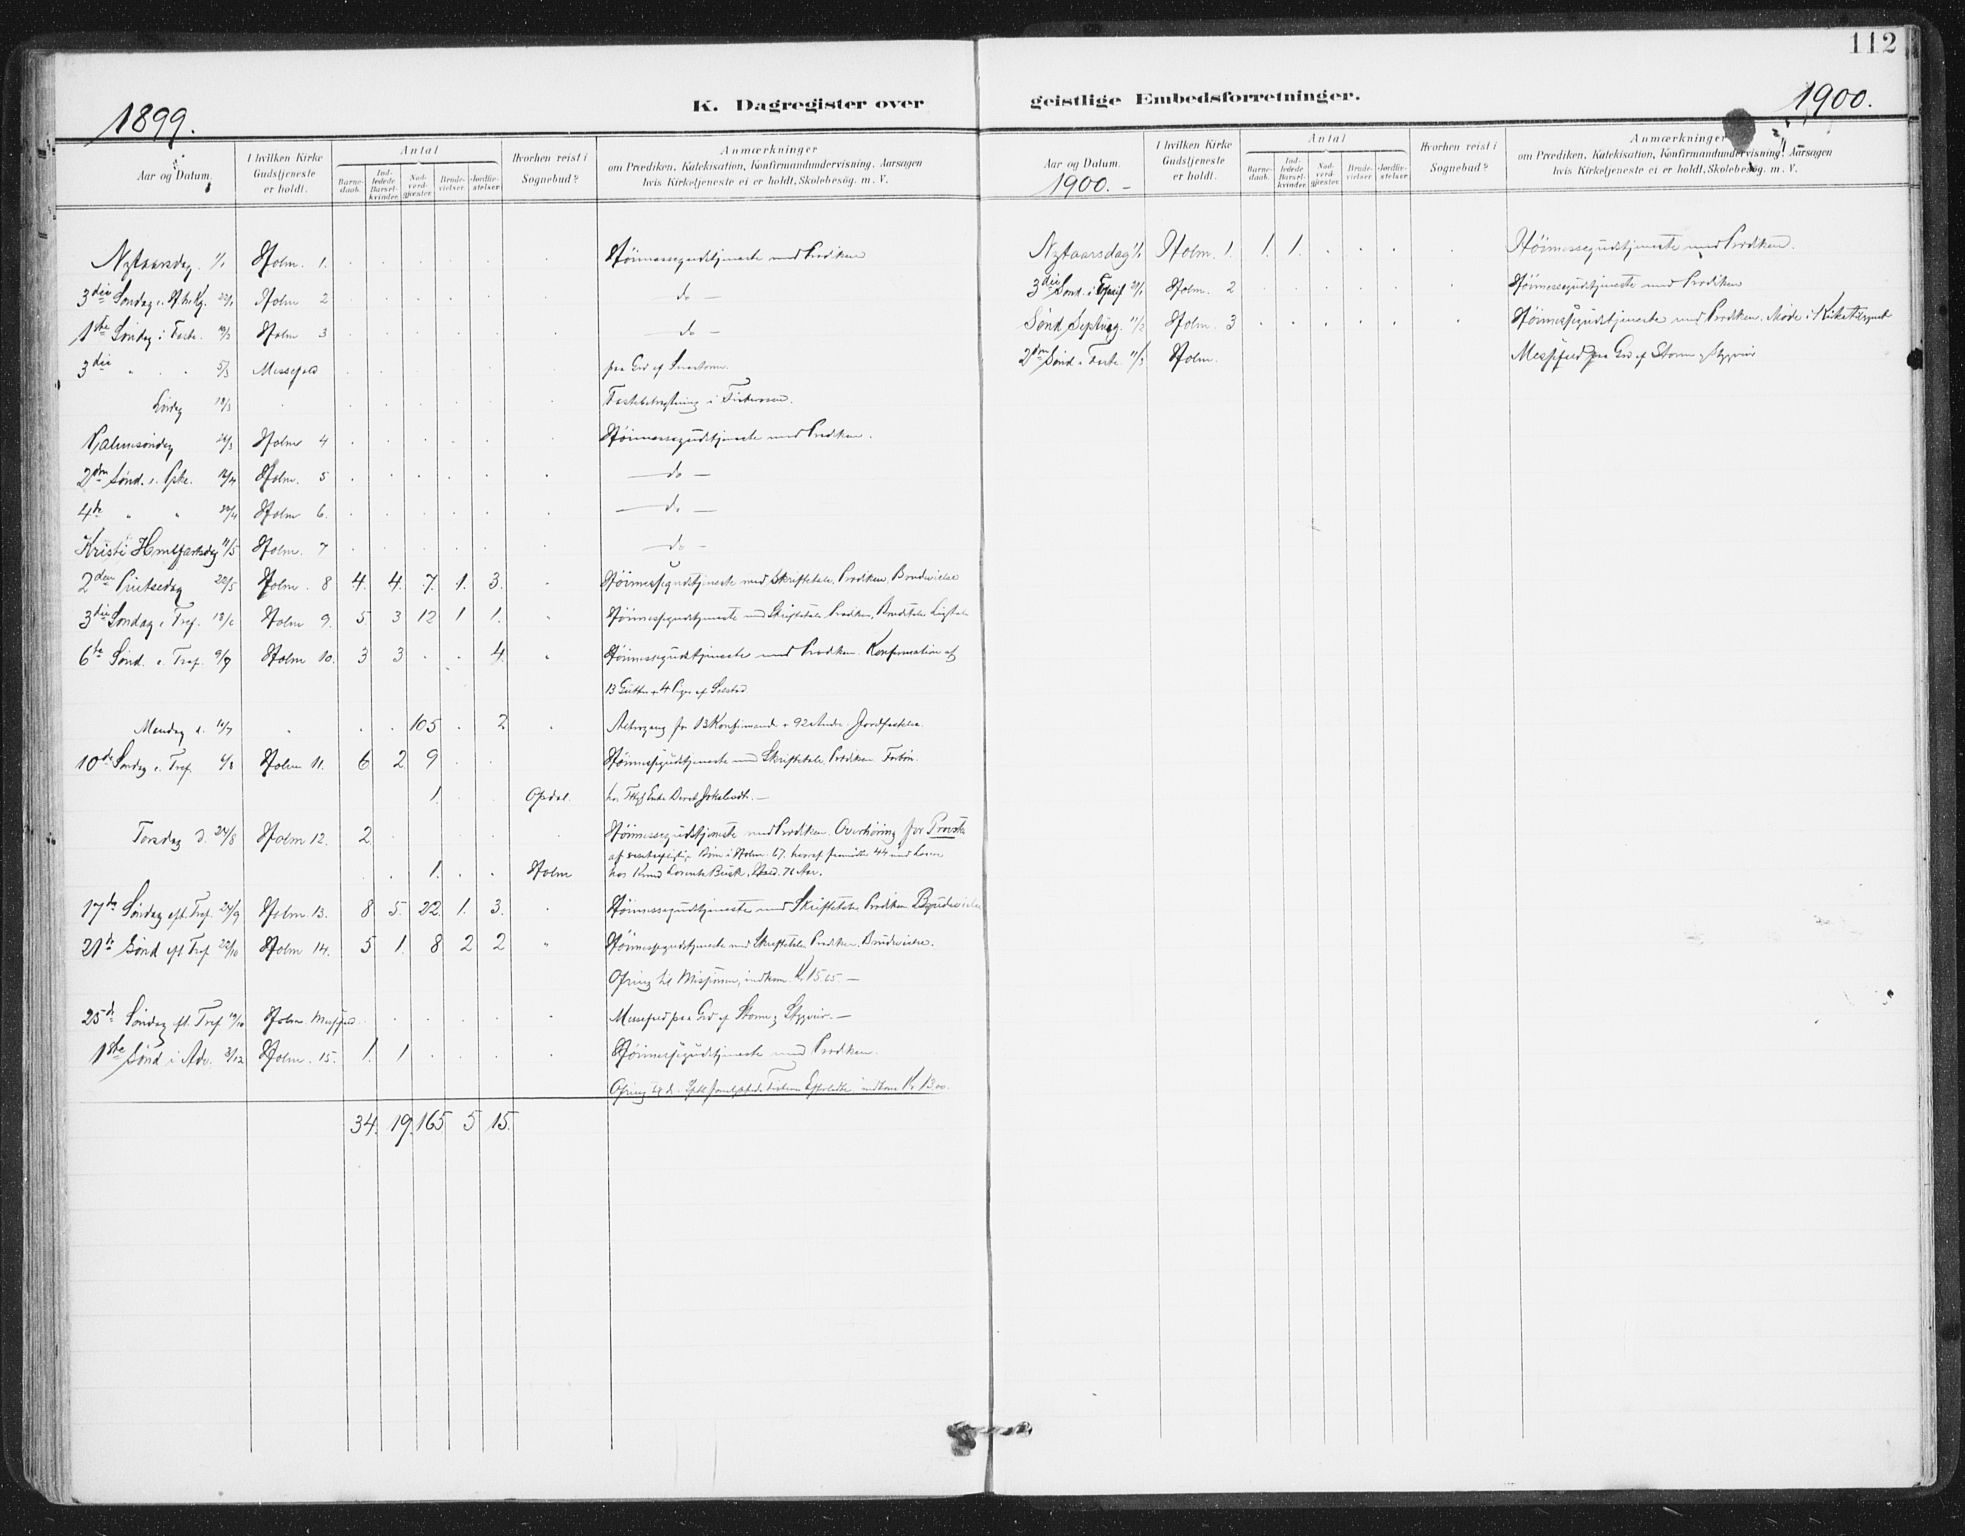 112
1899.
K. Dagregister over
geistlige Embedsforretninger.
1900.
Aar og Datum.
I hvilken Kirke Gudstjeneste er holdt.
Antal
Barnedaab.
Indledede Barselkvinder.
Nadverdgjester.
Brudevielser.
Jordfæstelser.
Hvorhen reist i Sognebud?
Anmærkninger
om Prædiken, Katekisation, Konfirmandundervisning, Aarsagen
hvis Kirketjeneste ei er holdt, Skolebesög. m. V.
Nytaarsdag 1/1 Holm. 1. Höimessegudstjeneste med Prædiken
3die Söndag 22/1 Holm 2 do —
1ste Söndag i Faste 19/2 Holm 3 do —
3die " " 5/3 Messefald paa Grd af
19/3 Fastebetragtning i
Palmesöndag 26/3 Holm 4 Höimessegudstjeneste med Prædiken.
2den Sönd. e. Paske. 16/4 Holm. 5 — do —
4de " " 30/4 Holm 6. — do —
Kristi Himlfartsdag 11/5 Holm. 7 do —
2den Pintsedag 22/5 Holm. 8 4. 4. 7. 1. 3. " Höimessegudstjeneste med Skriftetale, Prædiken, Brudevielse
3die Söndag e. Tref. 18/6 Holm 9. 5. 3 12 1 1. " Höimessegudstjeneste med Skriftetale Prædiken, Brudetale Ligtale
6te Sönd. e. Tref. 9/7 Holm 10. 3 3 . . 4. " Höimessegudstjeneste med Prædiken. Konfirmation af
13 Gutter + 4 Piger af
Mandag d. 10/7 " . . 105 . 2 " Altergang for 13 Konfirmander + 92 Andre. Jordfæstelse.
10de Söndag e. Tref. 6/8 Holm 11. 6 2 9 . . Höimessegudstjeneste med Skriftetale, Prædiken Forbön.
1. . . Opdal. hos Enke Beret
Torsdag d. 24/8 Holm 12. 2 Höimessegudstjeneste med Prædiken. Overhöring for Provsten
af Börn i Holm. 67. heraf fremmödte 44 med Lærer
. . 1. . . Holm hos Knud Lorents Buck. 76 Aar.
17de Söndag eft. Tref. 24/9 Holm 13. 8 5. 22. 1. 3. " Höimessegudstjeneste med Skriftetale Prædiken Brudevielse
21de Sönd eft. Tref 22/10 Holm 14. 5 1. 8 2 2 " Höimessegudstjeneste med Skriftetale Prædiken. Brudevielse.
Ofring til Missionen, indkom K. 15.05. —
25de Söndag eft. Tref Holm Messfald Messefald paa Grd af Storm og Styggveir. —
1ste Sönd i Adv. 3/12 Holm. 15. 1. 1 . . . Höimessegudstjeneste med Prædiken.
Ofring til de Efterladte indkom K. 13.00.
34. 19. 165 5 15.
Aar og Datum.
1900. —
I hvilken Kirke Gudstjeneste er holdt.
Antal
Barnedaab.
Indledede Barselkvinder.
Nadverdgjester.
Brudevielser.
Jordfæstelser.
Hvorhen reist i Sognebud?
Anmærkninger
om Prædiken, Katekisation, Konfirmandundervisning, Aarsagen
hvis Kirketjeneste ei er holdt, Skolebesög. m. V.
Nytaarsdag 1/1 Holm. 1. 1. 1. . . . . Höimessegudstjeneste med Prædiken.
3die Sönd. 21/1 Holm. 2 Höimessegudstjeneste med Prædiken
Sönd Septuag. 11/2 Holm. 3 Höimessegudstjeneste med Prædiken. Möde i Kirketilsynet
2den Sönd i Faste 11/3 Holm. Messfald paa Grd af Storm og Styggveir